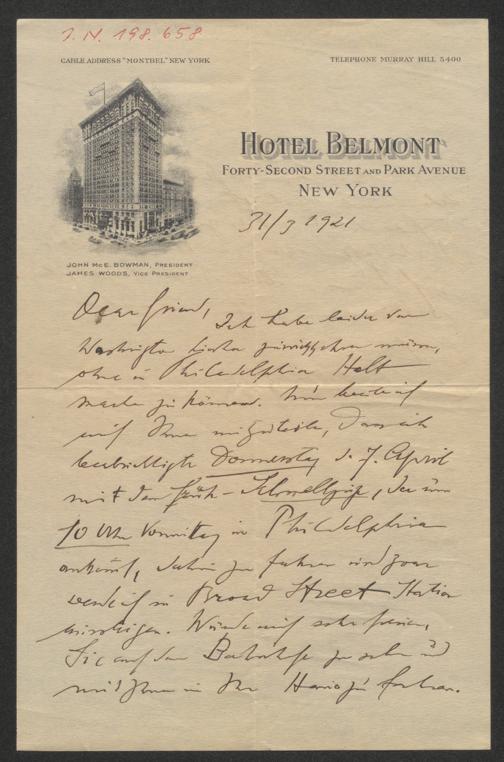 I. N. 198.658
CABLE ADDRESS "MONTBEL" NEW YORK
TELEPHONE MURRAY HILL 5400
HOTEL BELMONT
FORTY-SECOND STREET AND PARK AVENUE
NEW YORK
31/3 1921
JOHN McE. BOWMAN, PRESIDENT
JAMES WOODS, VICE PRESIDENT
Dear friend, Ich habe leider von
Washington hierher zurückkehren müssen,
ohne in Philadelphia Halt
machen zu können. Nun beeile ich
mich Ihnen mitzuteilen, dass ich
beabsichtige Donnerstag d. 7. April
mit dem Früh-Schnellzuge, der um
10 Uhr Vormittag in Philadelphia
ankommt, dahin zu fahren und zwar
werde ich in Broad Street Station
aussteigen. Würde mich sehr freuen,
Sie auf dem Bahnhofe zu sehen und
mit Ihnen in Ihr Haus zu fahren.